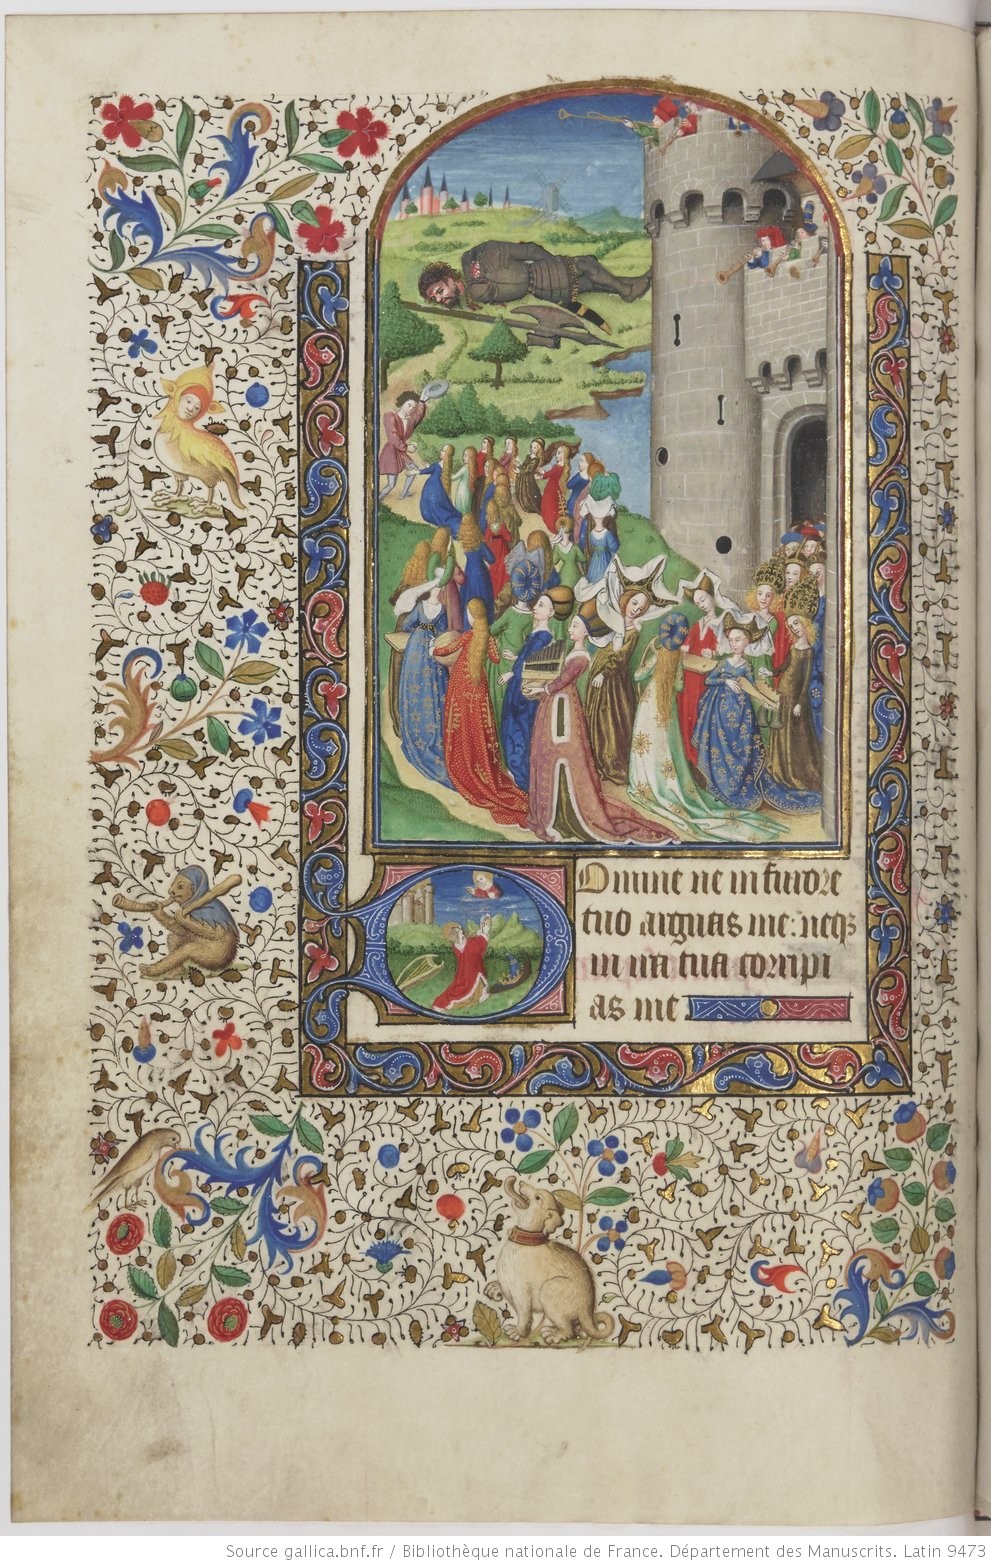 Domine ne in furore
tuo arguas me: neqꝫ
in ira tua corripi
as me
Source gallica.bnf.fr / Bibliothèque nationale de France. Département des Manuscrits. Latin 9473